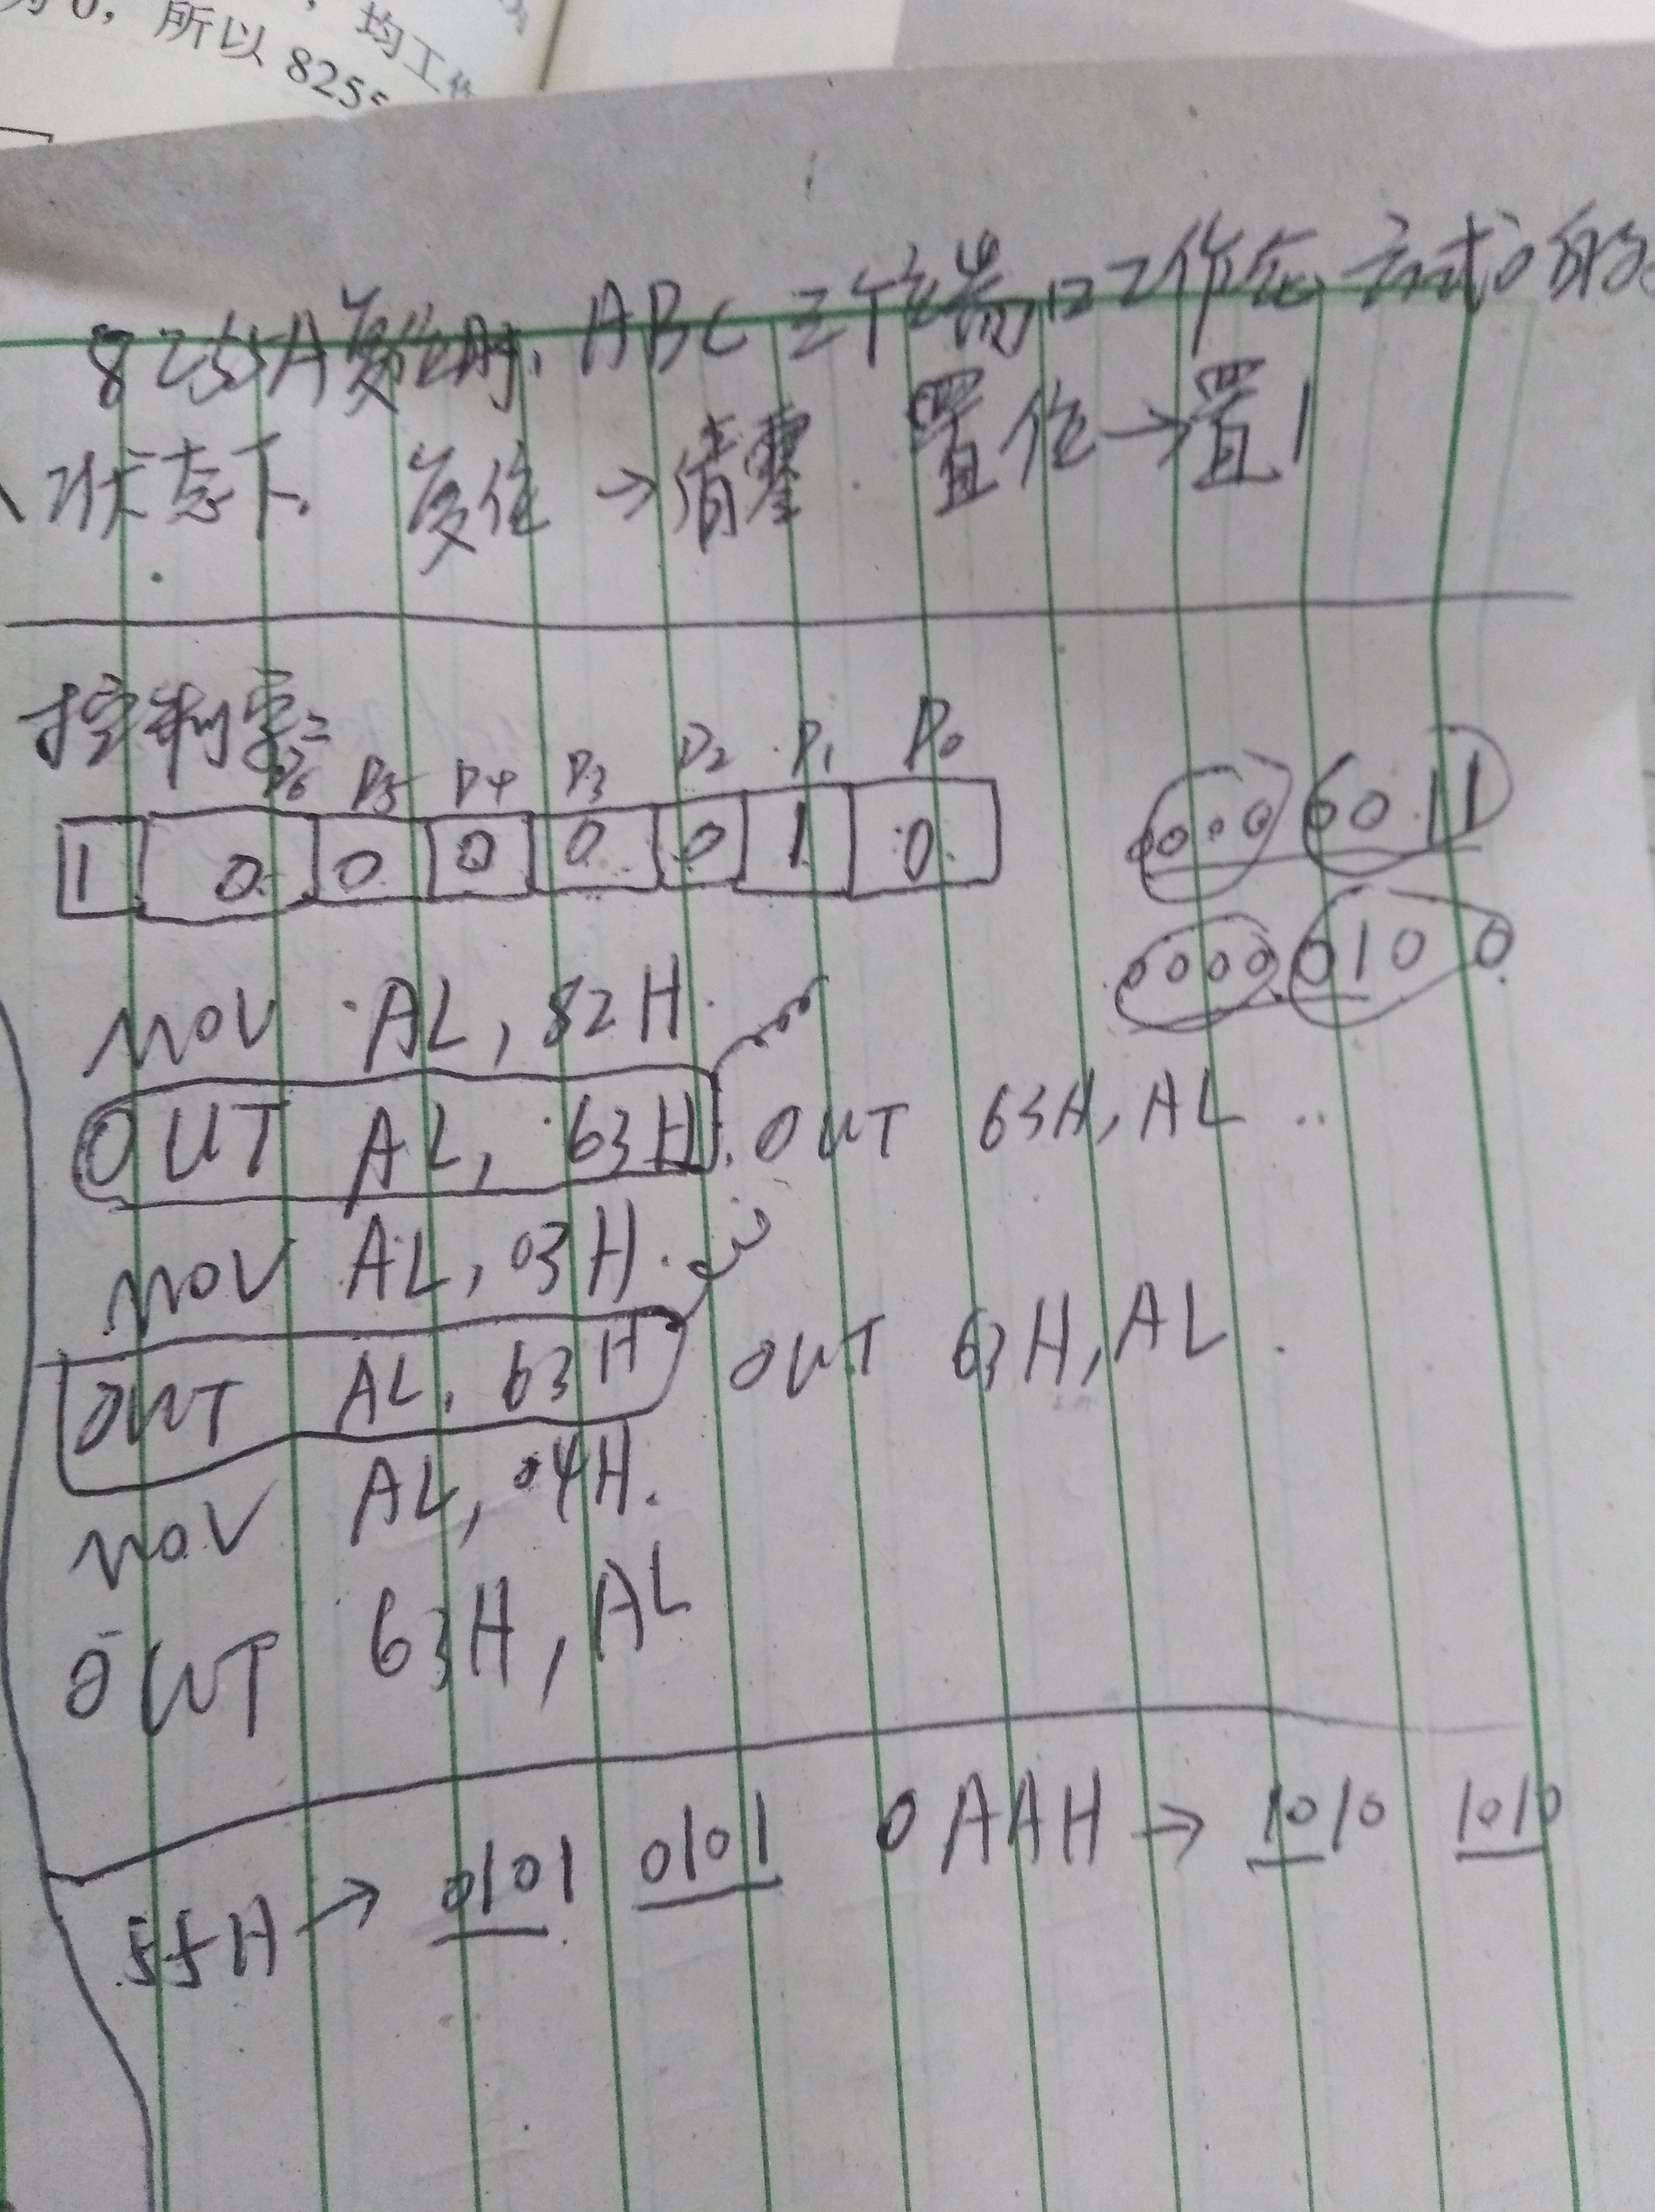 0，所以 8255
均工作
8255A复位时，ABC三个端口工作在方式0的
状态下. 复位→清零. 置位→置1
控制字:
D6 D5 D4 D3 D2 D1 D0
1 0 0 0 0 0 1 0
0000 0011
0000 0100
MOV AL, 82H.
OUT AL, 63H. OUT 63H, AL ..
MOV AL, 03H.
OUT AL, 63H OUT 63H, AL.
MOV AL, 04H.
OUT 63H, AL
55H → 0101 0101 0AAH → 1010 1010